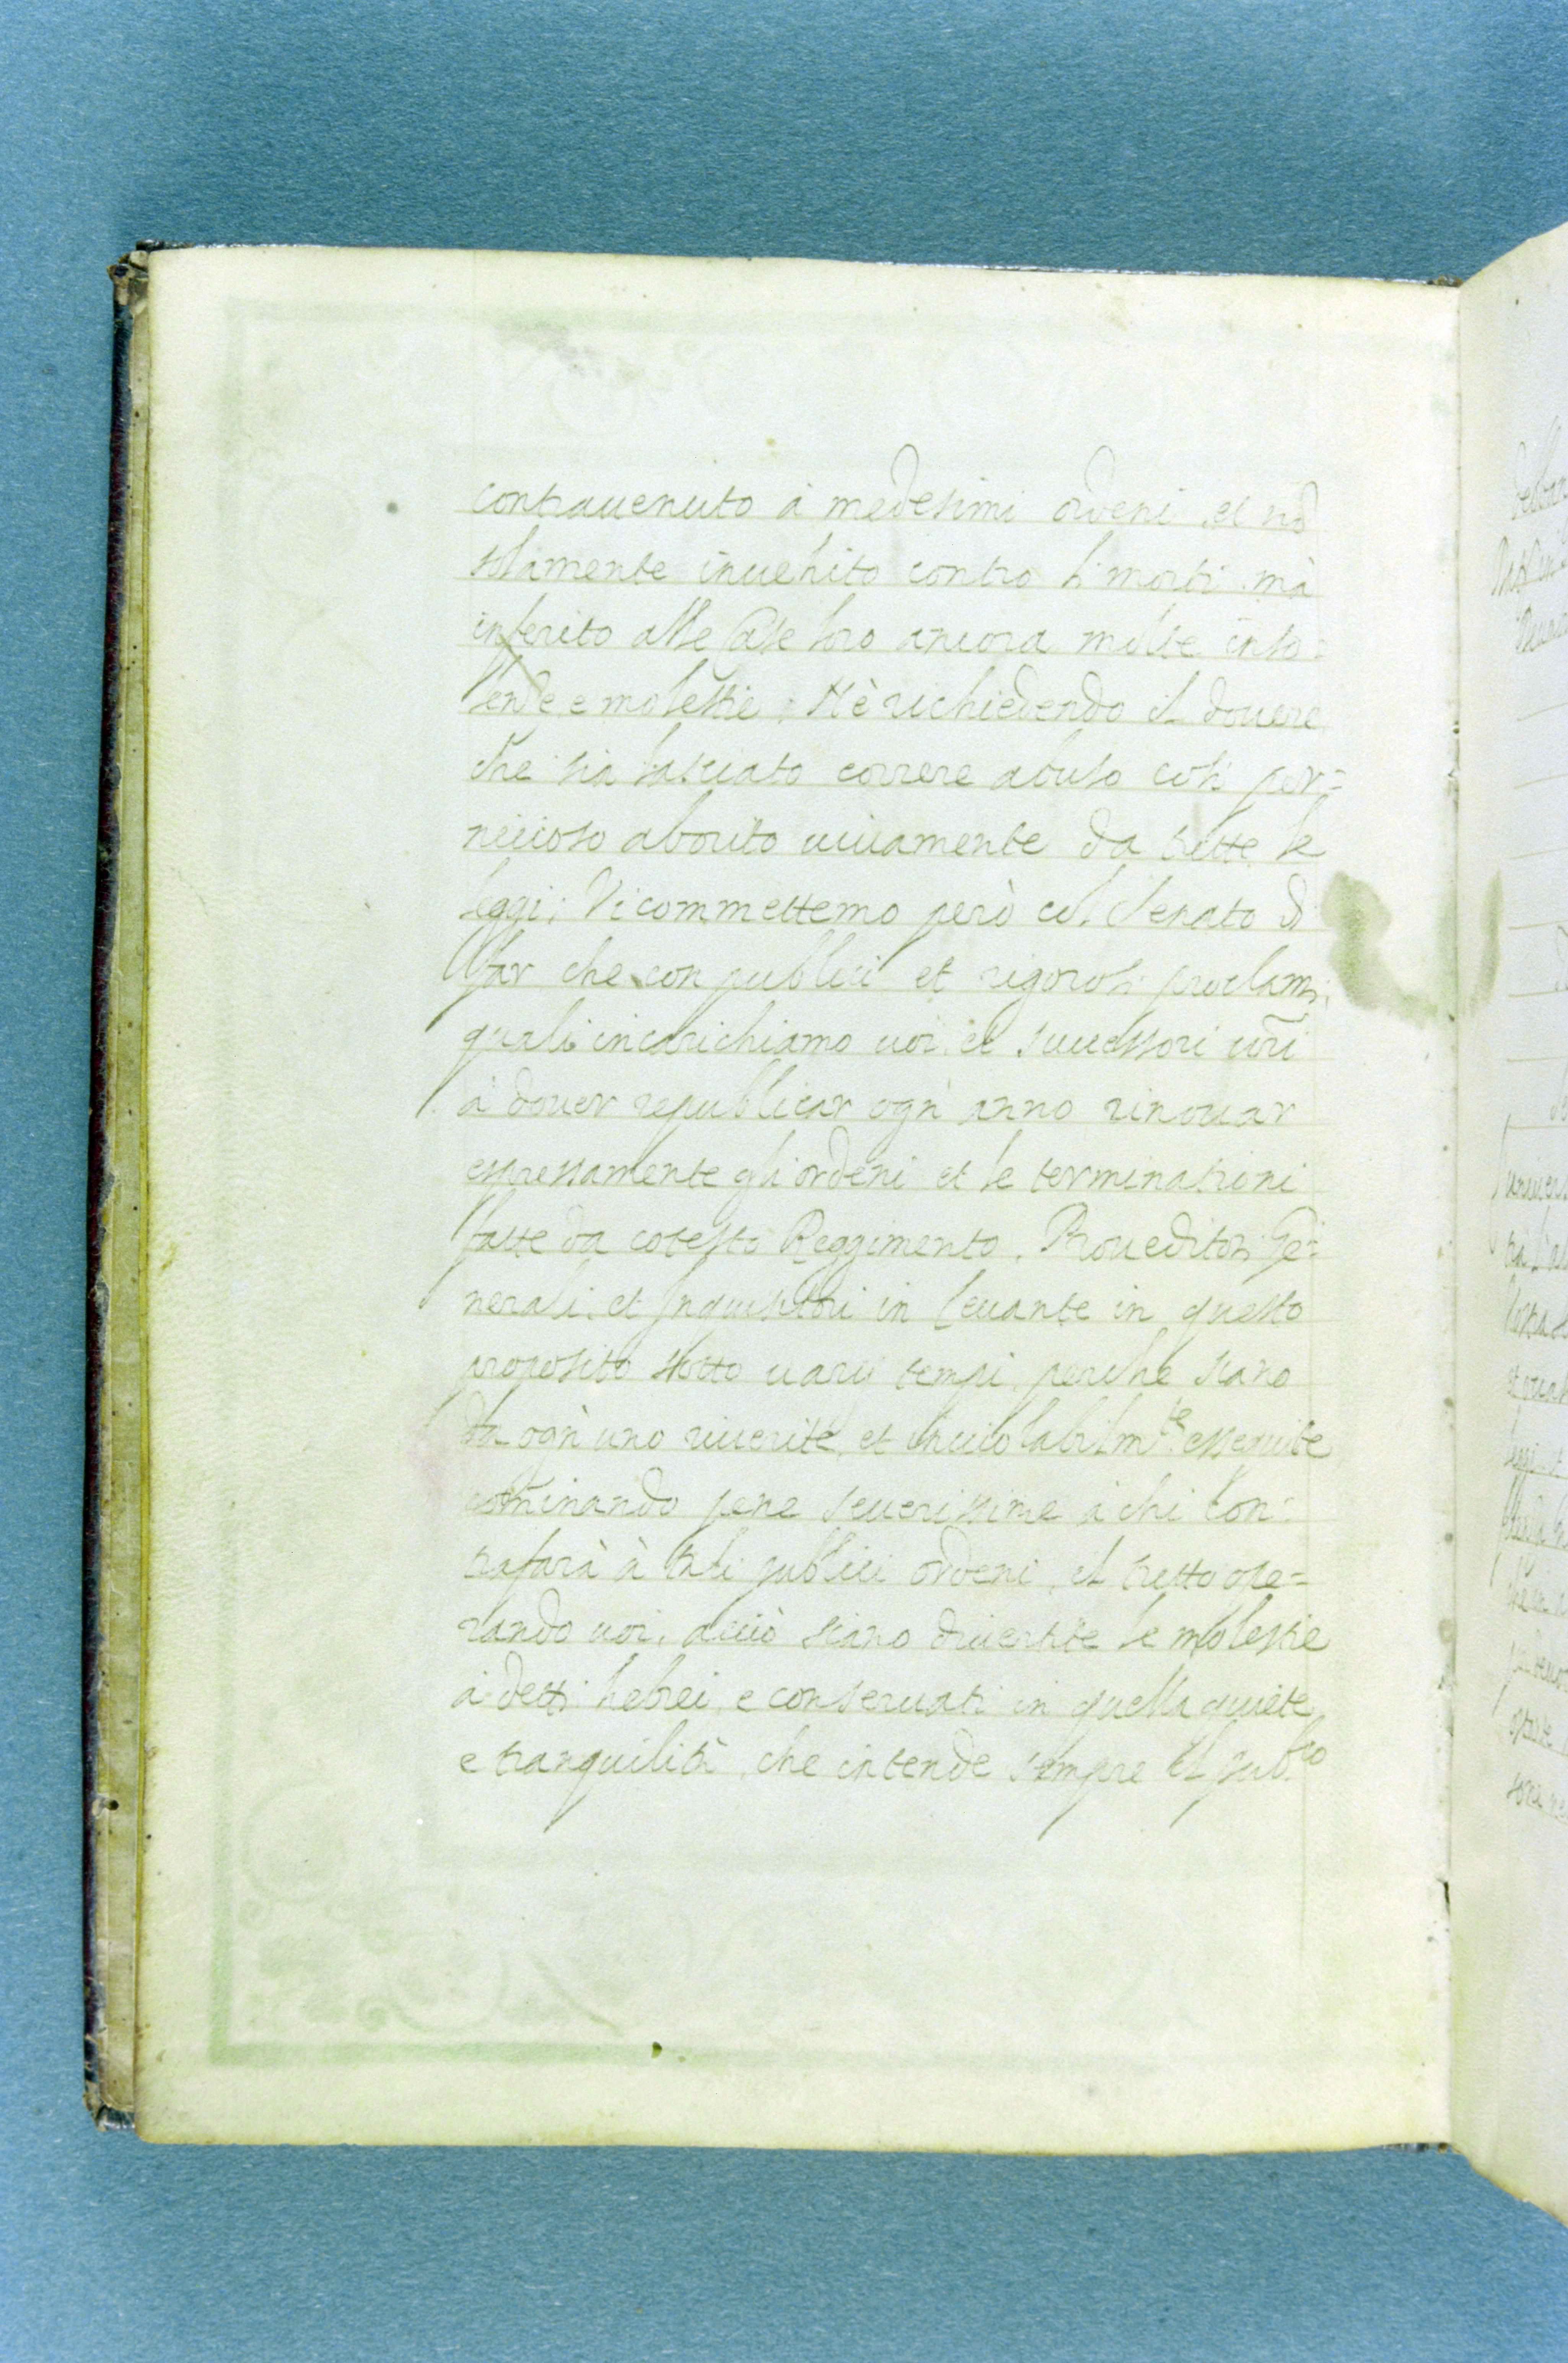 contrauenuto à medesimi ordeni, et nō
solamente inuehito contro li morti mà
inferito alle Case loro ancora molte inso=
lenze e molestie; Nè richiedendo il douere
che sia lasciato correre abuso così per=
niccioso aborito uiuamente da tutte le
leggi; Vi commettemo però col Senato di
far che con publici et rigorosi proclami,
quali incarichiamo uoi, et successori uri
à douer republicar ogn' anno rinouar
espressamente gli ordeni et le terminationi
fatte da cotesto Reggimento, Proueditori Ge=
nerali, et Inquisitori in Leuante in questo
proposito sotto uarij tempi, perche siano
da ogn' uno riuerite, et inuiolabilmte esseguite
cominando pene seuerissime à chi con=
trafarà à tali publici ordeni, il tutto ope=
rando uoi, acciò siano diuertite le molestie
à detti hebrei, e conseruati in quella quiete,
e tranquilità, che intende sempre il pubco